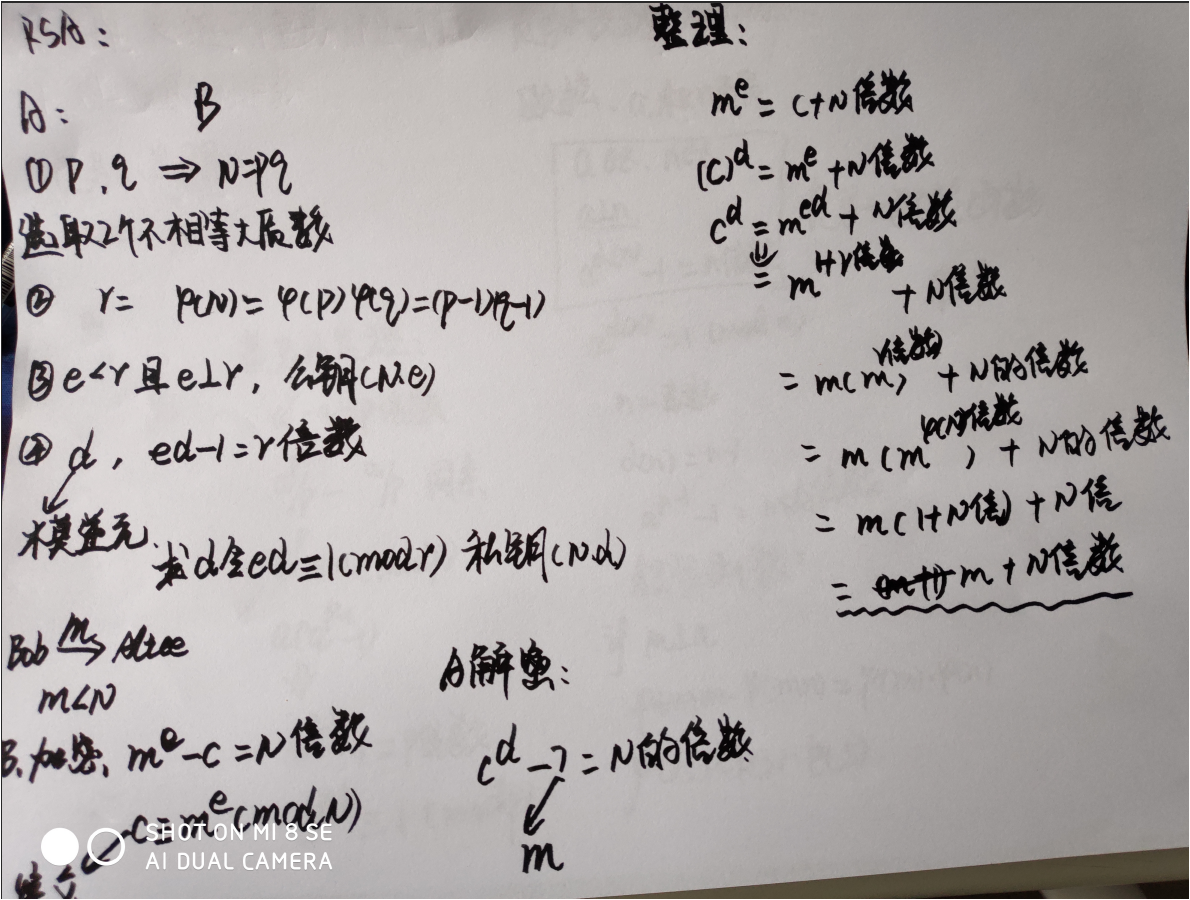 RSA:
A: B
① P, q ⇒ N=Pq
选取2个不相等大质数
② r= φ(N)= φ(P)φ(q)=(P-1)(q-1)
③ e<r且e⊥r, 公钥(N.e)
④ d, ed-1=r倍数
模逆元.
求d令ed≡1(mod r) 私钥(N.d)
Bob m→ Alice
m<N
B.加密, m^e-c=N倍数
c≡m^e(mod N)
A解密:
c^d-?=N的倍数
m
整理:
m^e = c+N倍数
(c)^d = m^e+N倍数
c^d = m^ed + N倍数
= m^1+r倍数 + N倍数
= m(m)^r倍数 + N的倍数
= m(m^φ(N)倍数) + N的倍数
= m(1+N倍) + N倍
= m + N倍数
SHOT ON MI 8 SE
AI DUAL CAMERA